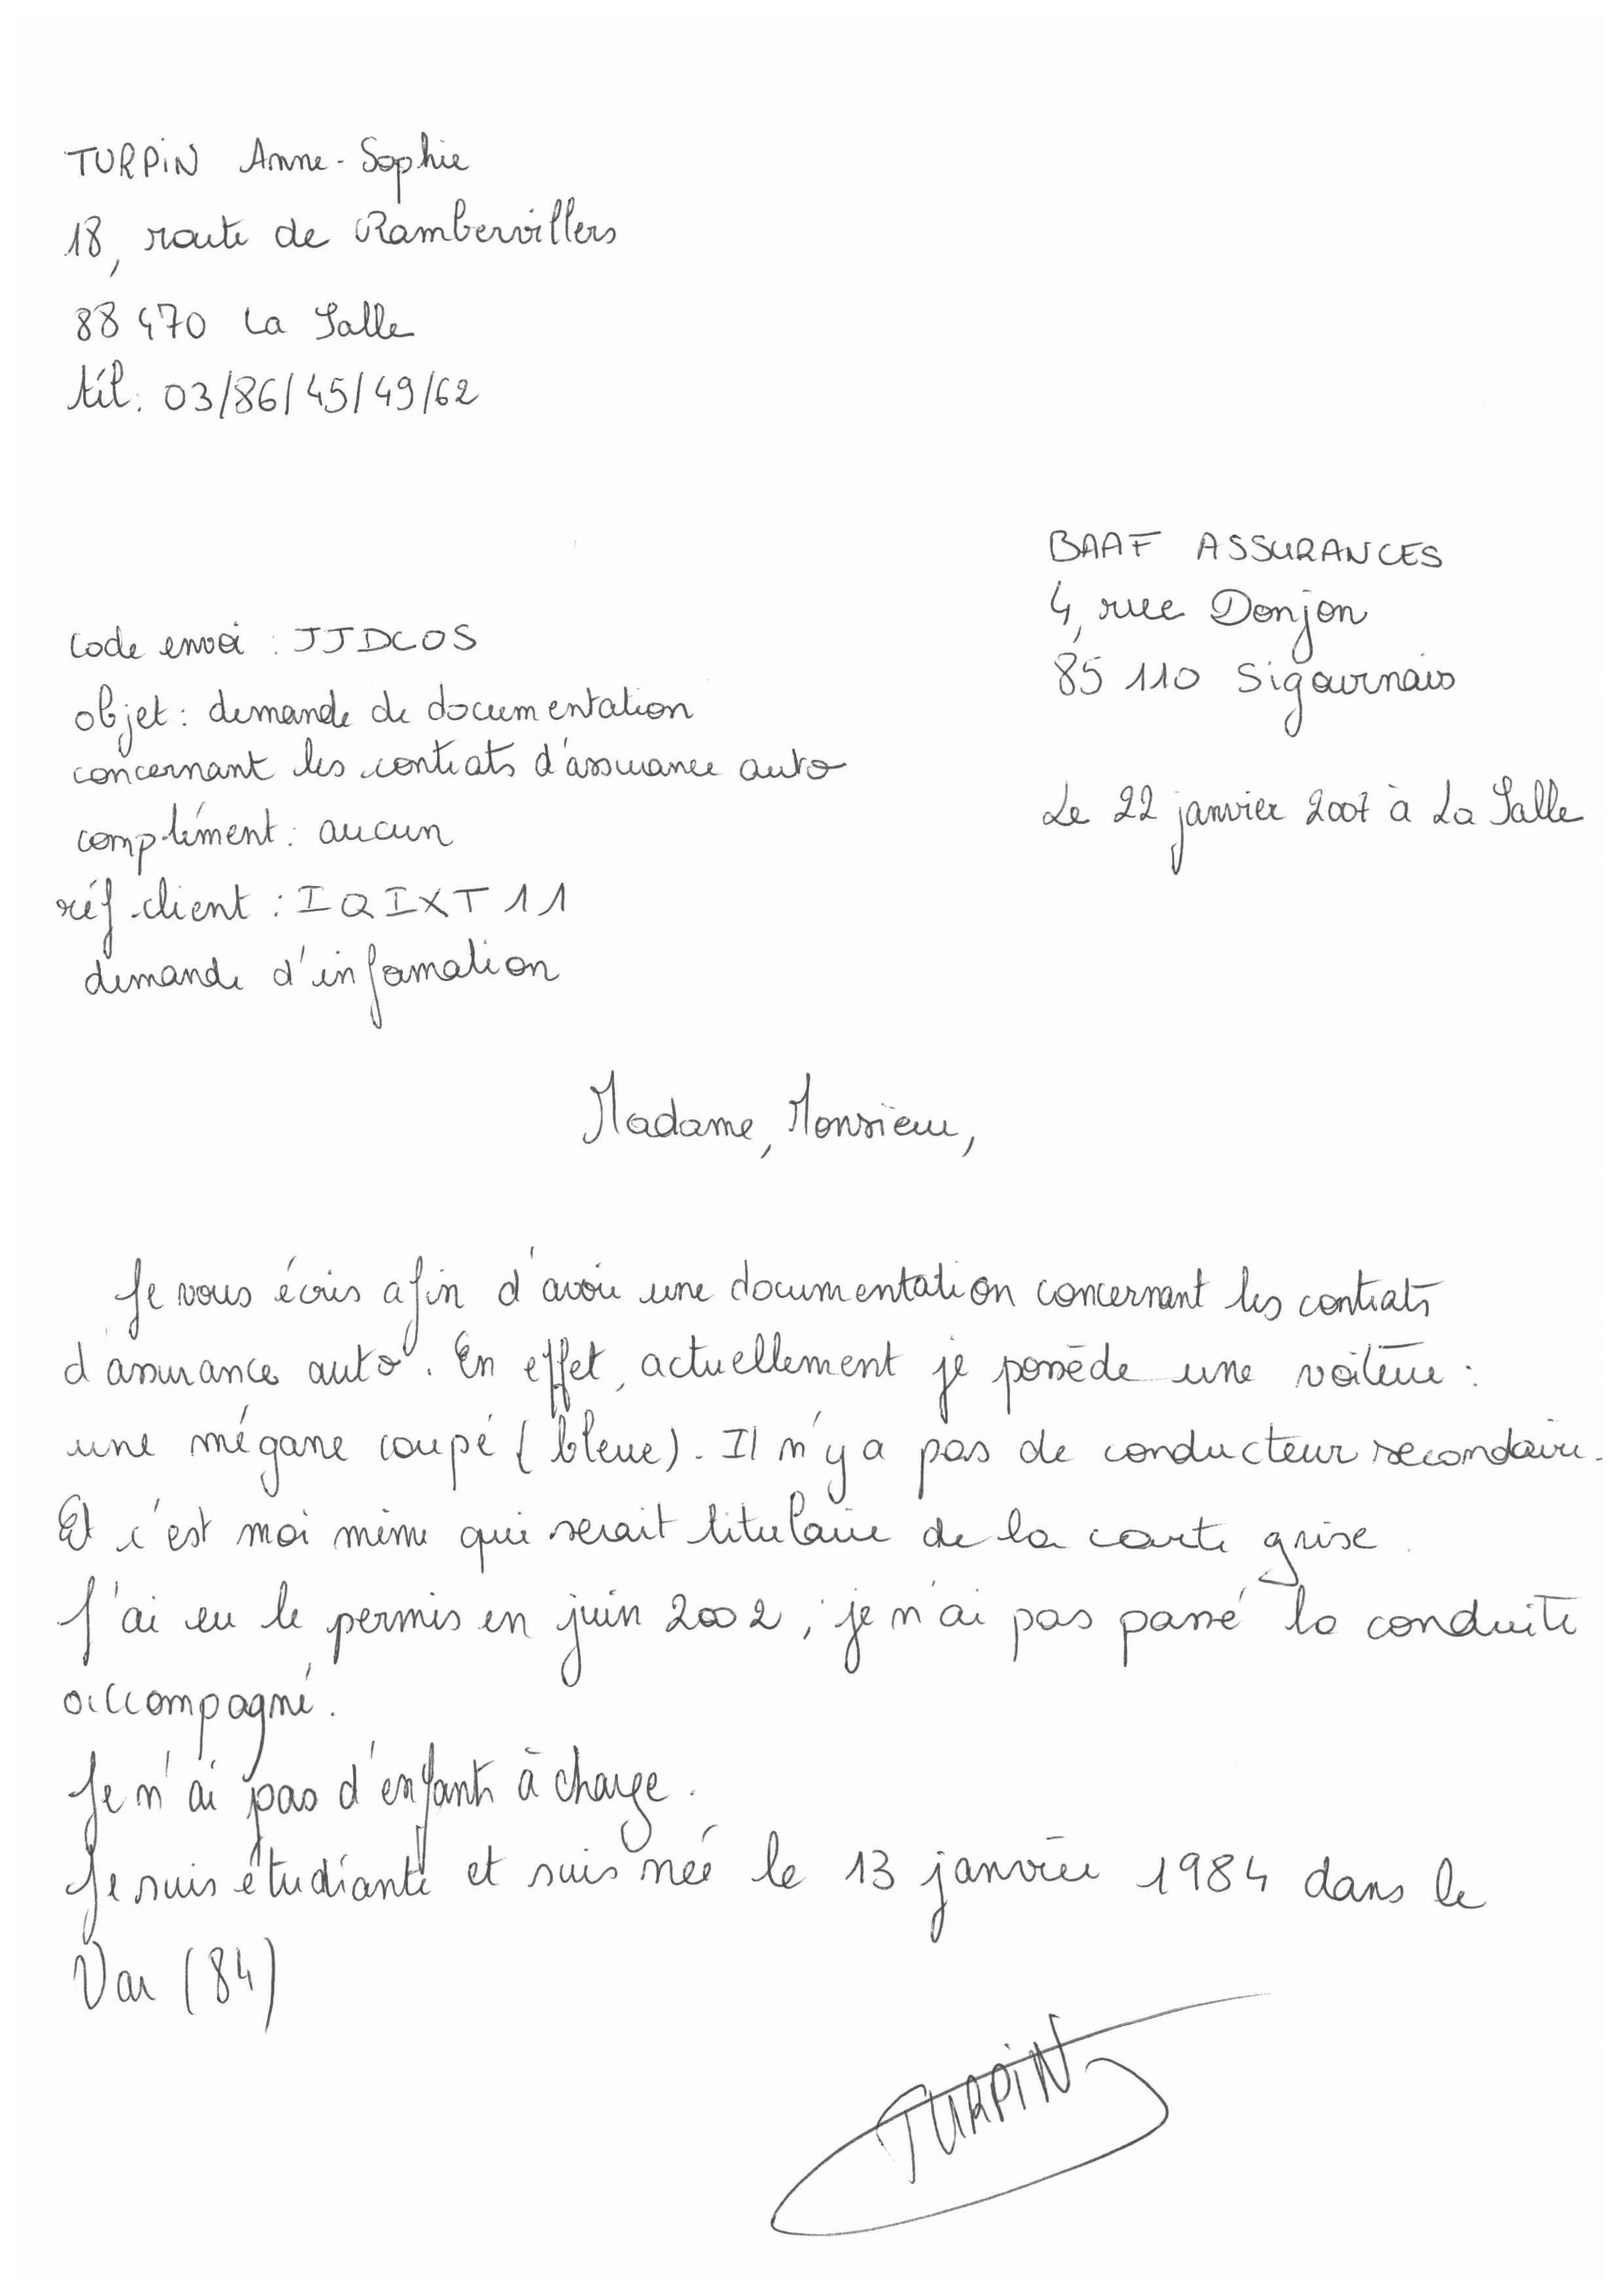 TURPIN Anne-Sophie
18, route de Rambervillers
88 470 La Salle
tél. 03/86/45/49/62
BAAF ASSURANCES
4, rue Donjon
85 110 Sigournais
Code envoi : JJDCOS
objet : demande de documentation
concernant les contrats d'assurance auto
Le 22 janvier 2007 à La Salle
complément : aucun
réf client : IQIXT11
demande d'information
Madame, Monsieur,
Je vous écris afin d'avoir une documentation concernant les contrats
d'assurance auto. En effet, actuellement je possède une voiture :
une mégane coupé (bleue). Il n'y a pas de conducteur secondaire.
Et c'est moi même qui serait titulaire de la carte grise.
J'ai eu le permis en juin 2002, je n'ai pas passé la conduite
accompagné.
Je n'ai pas d'enfants à charge.
Je suis étudiante et suis née le 13 janvier 1984 dans le
Var (84)
TURPIN